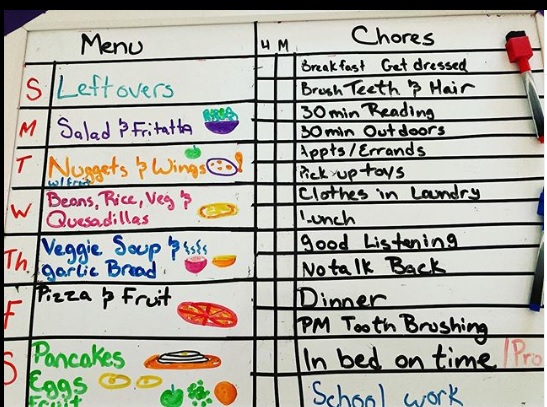 Menu
S Leftovers
M Salad & Fritatta
T Nuggets & Wings
w/Fruit
W Beans, Rice, Veg &
Quesadillas
Th. Veggie Soup &
garlic Bread
F Pizza & Fruit
S Pancakes
Eggs
Fruit
H M Chores
Breakfast Get dressed
Brush Teeth & Hair
30 min Reading
30 min Outdoors
Appts/Errands
Pick up toys
Clothes in Laundry
Lunch
good Listening
No talk Back
Dinner
PM Tooth Brushing
In bed on time /Pro
School work